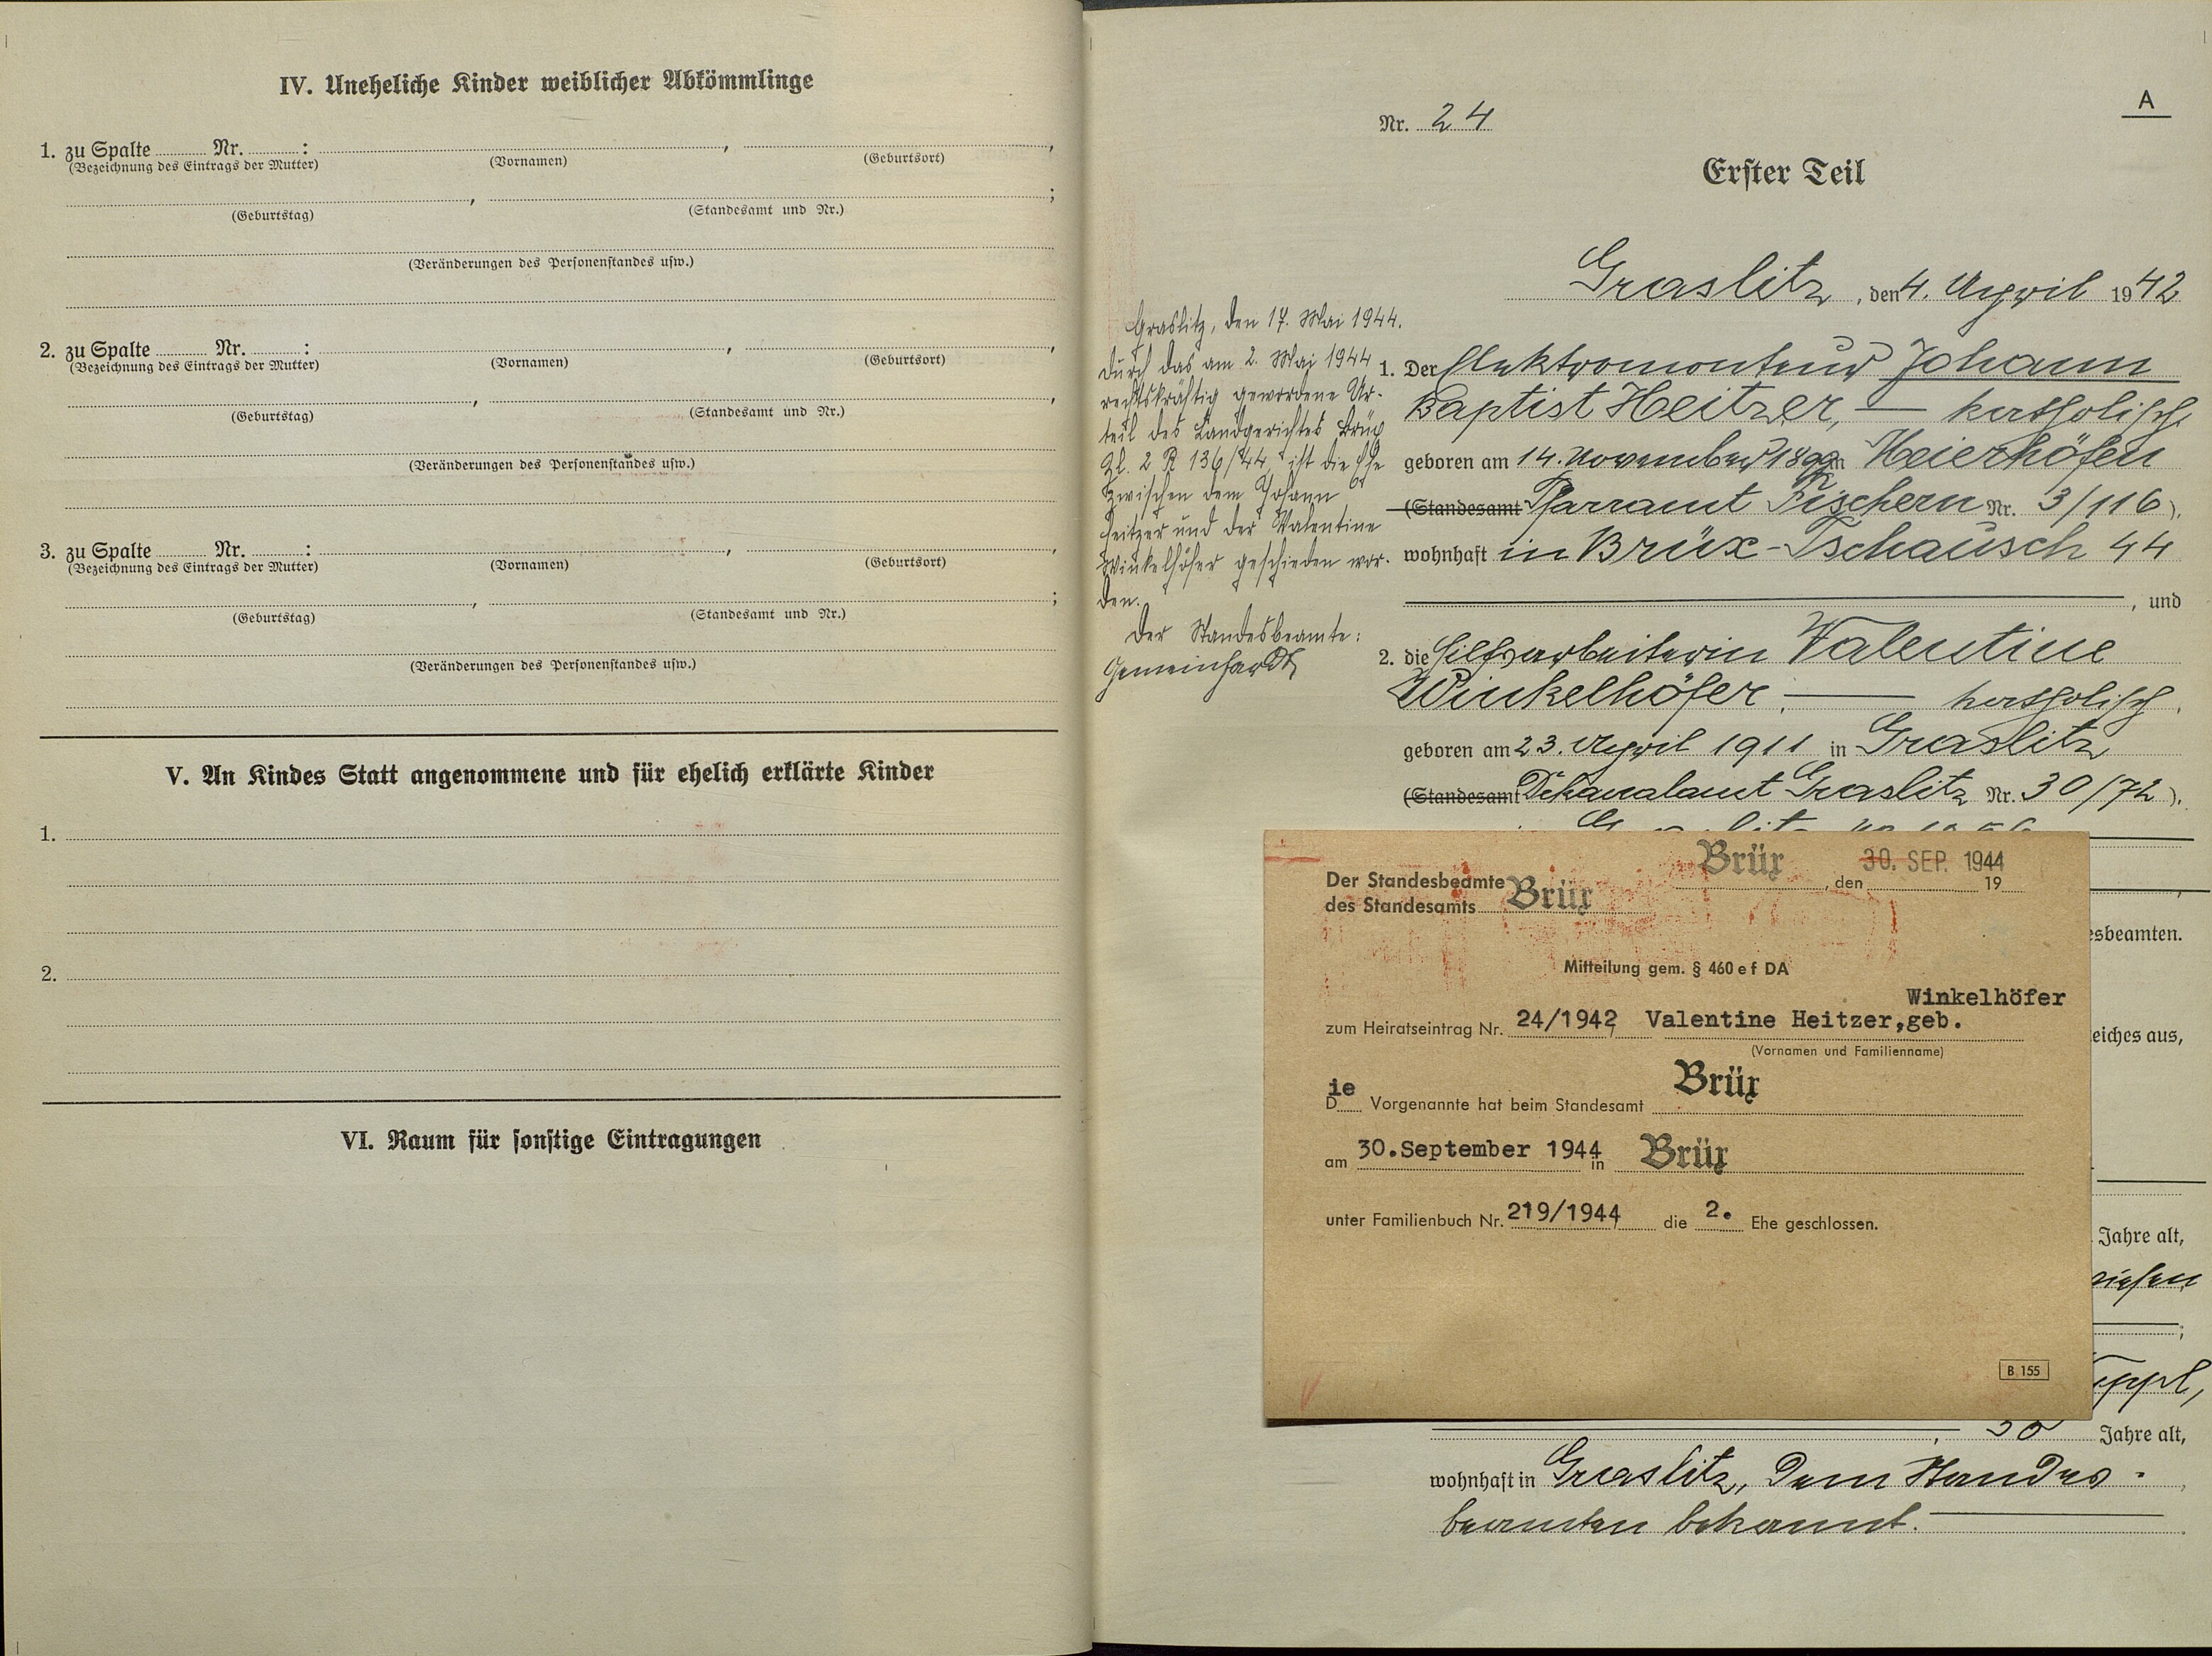 IV. Uneheliche Kinder weiblicher Abkömmlinge
1. zu Spalte ........ Nr. ........ : ........ , ........ ,
(Bezeichnung des Eintrags der Mutter) (Vornamen) (Geburtsort)
........ , ........ ;
(Geburtstag) (Standesamt und Nr.)
(Veränderungen des Personenstandes usw.)
2. zu Spalte ........ Nr. ........ : ........ , ........ ,
(Bezeichnung des Eintrags der Mutter) (Vornamen) (Geburtsort)
........ , ........ ,
(Geburtstag) (Standesamt und Nr.)
(Veränderungen des Personenstandes usw.)
3. zu Spalte ........ Nr. ........ : ........ , ........ ,
(Bezeichnung des Eintrags der Mutter) (Vornamen) (Geburtsort)
........ , ........ ;
(Geburtstag) (Standesamt und Nr.)
(Veränderungen des Personenstandes usw.)
V. An Kindes Statt angenommene und für ehelich erklärte Kinder
1.
2.
VI. Raum für sonstige Eintragungen
A
Nr. 24
Erster Teil
Graslitz, den 4. April 1942
Graslitz, den 17. Mai 1944.
Durch das am 2. Mai 1944
rechtskräftig gewordene Ur-
teil des Landgerichtes Brüx
Zl. 2 R 136/44 ist die Ehe
zwischen dem Johann
Heitzer und der Valentine
Winkelhöfer geschieden wor-
den.
Der Standesbeamte:
Gemeinhardt
1. Der Elektromonteur Johann
Baptist Heitzer, — katholisch,
geboren am 14. November 1899 in Meierhöfen
(Standesamt Pfarramt Fischern Nr. 3/116),
wohnhaft in Brüx-Tschausch 44
, und
2. die Hilfsarbeiterin Valentine
Winkelhöfer, — katholisch,
geboren am 23. April 1911 in Graslitz
(Standesamt Dekanalamt Graslitz Nr. 30/72),
Brüx, den 30. SEP. 1944 19
Der Standesbeamte
des Standesamts Brüx
Mitteilung gem. § 460 e f DA
Winkelhöfer
zum Heiratseintrag Nr. 24/1942, Valentine Heitzer, geb.
(Vornamen und Familienname)
Die Vorgenannte hat beim Standesamt Brüx
am 30. September 1944 in Brüx
unter Familienbuch Nr. 219/1944, die 2. Ehe geschlossen.
B 155
esbeamten.
eiches aus,
Jahre alt,
Jahre alt,
wohnhaft in Graslitz, dem Standes-
beamten bekannt.